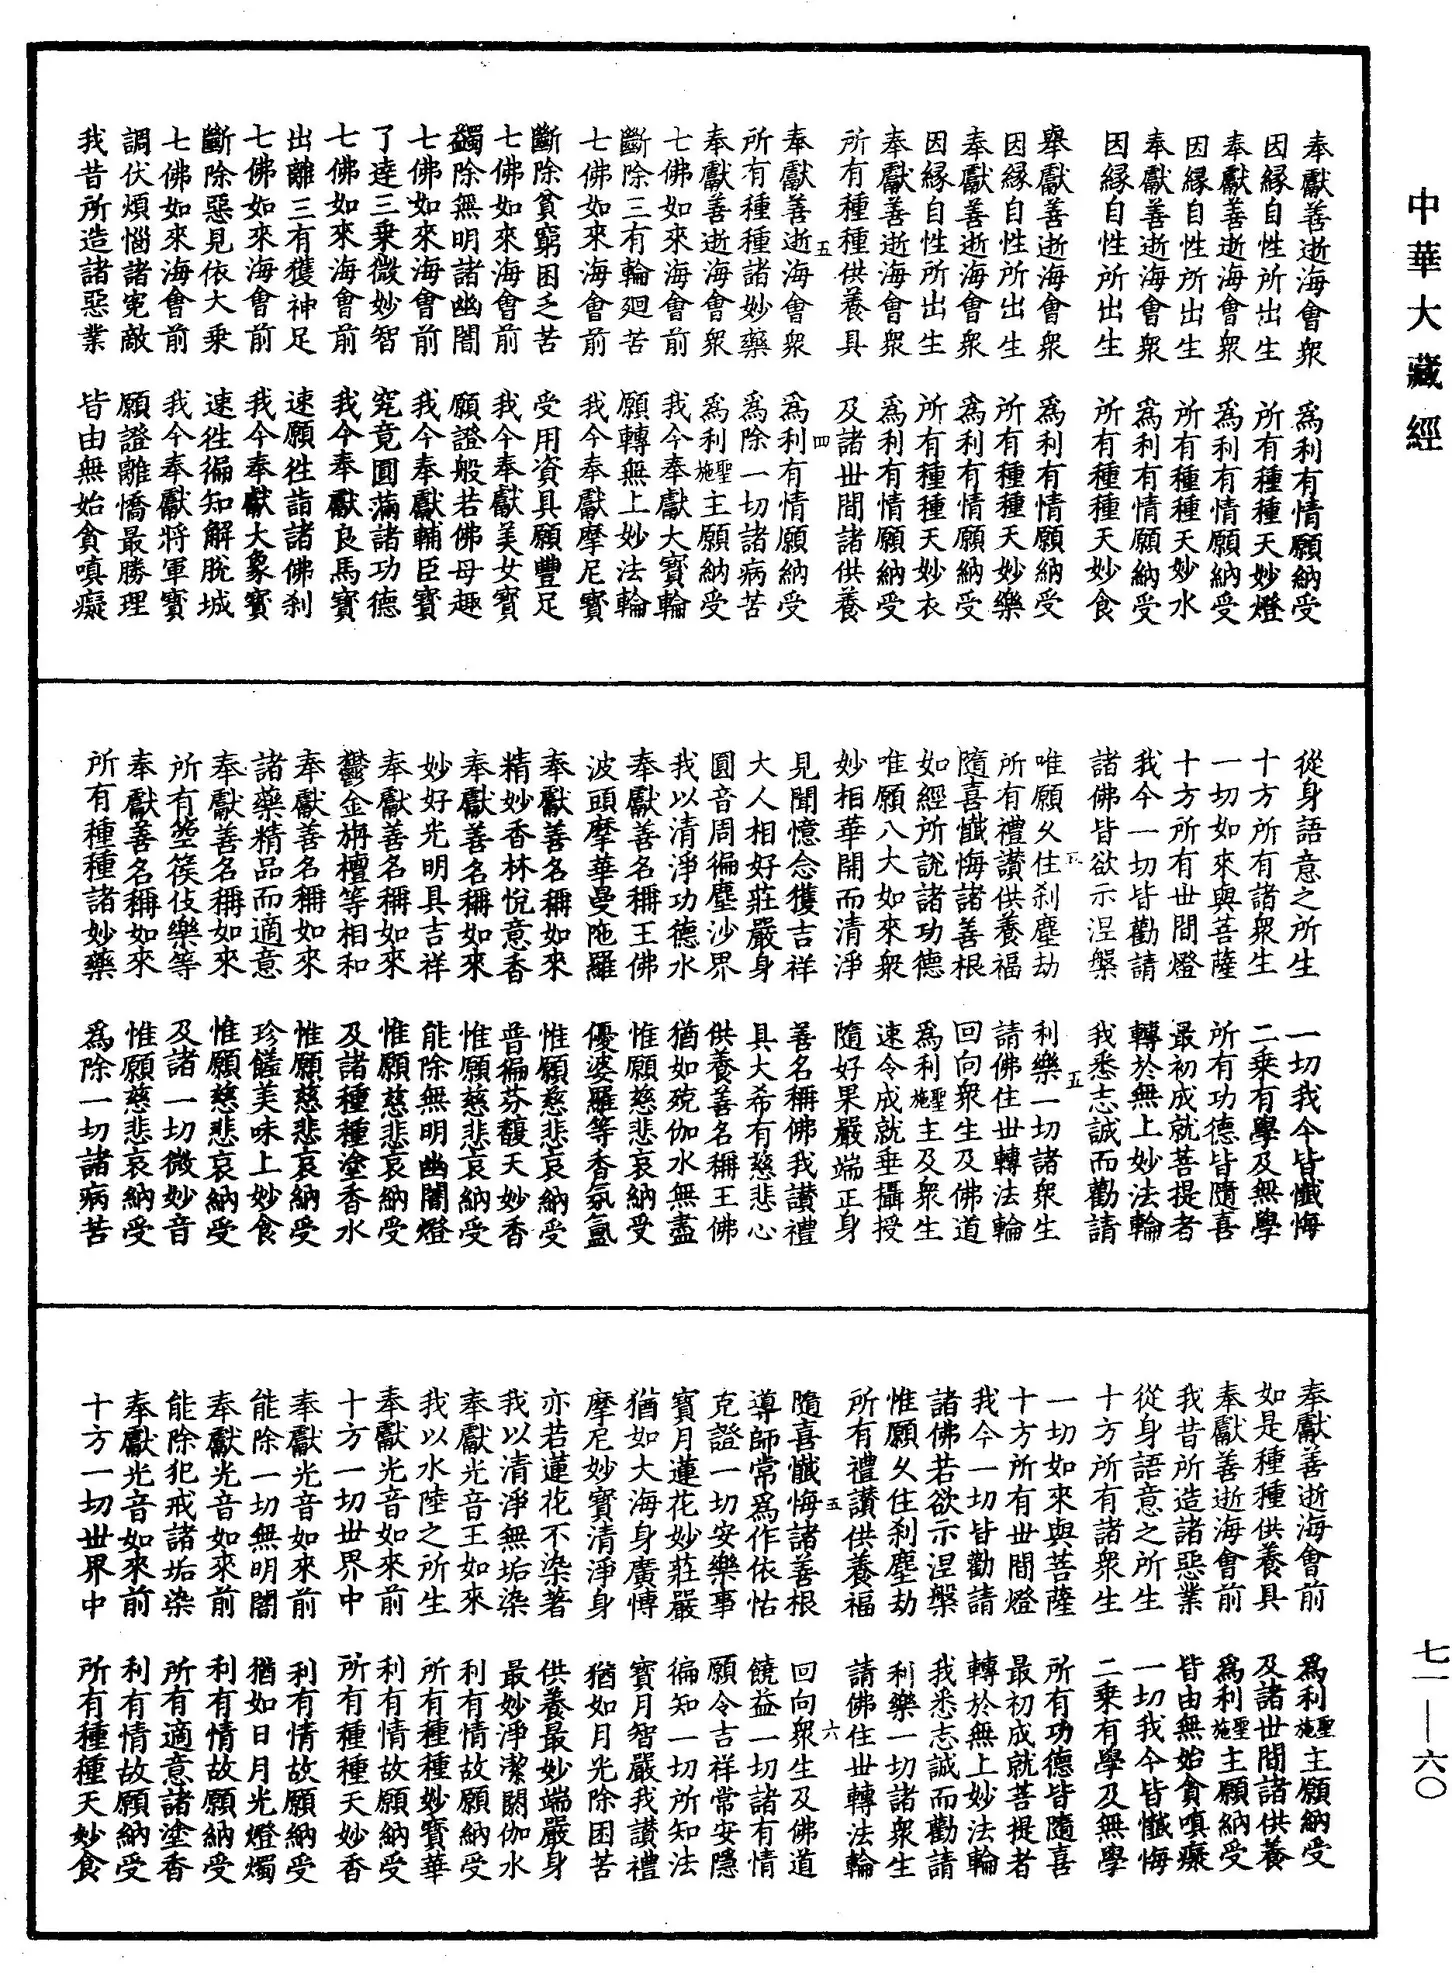 中華大藏經
奉獻善逝海會衆 爲利有情願納受
因緣自性所出生 所有種種天妙燈
奉獻善逝海會衆 爲利有情願納受
因緣自性所出生 所有種種天妙水
奉獻善逝海會衆 爲利有情願納受
因緣自性所出生 所有種種天妙食
奉獻善逝海會衆 爲利有情願納受
因緣自性所出生 所有種種天妙樂
奉獻善逝海會衆 爲利有情願納受
因緣自性所出生 所有種種天妙衣
奉獻善逝海會衆 爲利有情願納受
所有種種供養具 及諸世間諸供養
五 四
奉獻善逝海會衆 爲利有情願納受
所有種種諸妙藥 爲除一切諸病苦
奉獻善逝海會衆 爲利聖施主願納受
七佛如來海會前 我今奉獻大寶輪
斷除三有輪迴苦 願轉無上妙法輪
七佛如來海會前 我今奉獻摩尼寶
斷除貧窮困乏苦 受用資具願豐足
七佛如來海會前 我今奉獻美女寶
蠲除無明諸幽闇 願證般若佛母趣
七佛如來海會前 我今奉獻輔臣寶
了達三乘微妙智 究竟圓滿諸功德
七佛如來海會前 我今奉獻良馬寶
出離三有獲神足 速願徃詣諸佛刹
七佛如來海會前 我今奉獻大象寶
斷除惡見依大乘 速徃徧知解脫城
七佛如來海會前 我今奉獻將軍寶
調伏煩惱諸寃敵 願證離憍最勝理
我昔所造諸惡業 皆由無始貪嗔癡
從身語意之所生 一切我今皆懺悔
十方所有諸衆生 二乘有學及無學
一切如來與菩薩 所有功德皆隨喜
十方所有世間燈 最初成就菩提者
我今一切皆勸請 轉於無上妙法輪
諸佛皆欲示涅槃 我悉志誠而勸請
五
唯願久住刹塵劫 利樂一切諸衆生
所有禮讚供養福 請佛住世轉法輪
隨喜懺悔諸善根 回向衆生及佛道
如經所說諸功德 爲利聖施主及衆生
唯願八大如來衆 速令成就垂攝授
妙相華開而清淨 隨好果嚴端正身
見聞憶念獲吉祥 善名稱佛我讚禮
大人相好莊嚴身 具大希有慈悲心
圓音周徧塵沙界 供養善名稱王佛
我以清淨功德水 猶如殑伽水無盡
奉獻善名稱王佛 惟願慈悲哀納受
波頭摩華曼陁羅 優婆羅等香氛氳
奉獻善名稱如來 惟願慈悲哀納受
精妙香林悅意香 普徧芬馥天妙香
奉獻善名稱如來 惟願慈悲哀納受
妙好光明具吉祥 能除無明幽闇燈
奉獻善名稱如來 惟願慈悲哀納受
鬱金旃檀等相和 及諸種種塗香水
奉獻善名稱如來 惟願慈悲哀納受
諸藥精品而適意 珍饈美味上妙食
奉獻善名稱如來 惟願慈悲哀納受
所有箜篌伎樂等 及諸一切微妙音
奉獻善名稱如來 惟願慈悲哀納受
所有種種諸妙藥 爲除一切諸病苦
奉獻善逝海會前 爲利聖施主願納受
如是種種供養具 及諸世間諸供養
奉獻善逝海會前 爲利聖施主願納受
我昔所造諸惡業 皆由無始貪嗔癡
從身語意之所生 一切我今皆懺悔
十方所有諸衆生 二乘有學及無學
一切如來與菩薩 所有功德皆隨喜
十方所有世間燈 最初成就菩提者
我今一切皆勸請 轉於無上妙法輪
諸佛若欲示涅槃 我悉志誠而勸請
惟願久住刹塵劫 利樂一切諸衆生
所有禮讚供養福 請佛住世轉法輪
五 六
隨喜懺悔諸善根 回向衆生及佛道
導師常爲作依怙 饒益一切諸有情
克證一切安樂事 願令吉祥常安隱
寶月蓮花妙莊嚴 徧知一切所知法
猶如大海身廣愽 寶月智嚴我讚禮
摩尼妙寶清淨身 猶如月光除困苦
亦若蓮花不染著 供養最妙端嚴身
我以清淨無垢染 最妙淨潔閼伽水
奉獻光音王如來 利有情故願納受
我以水陸之所生 所有種種妙寶華
奉獻光音如來前 利有情故願納受
十方一切世界中 所有種種天妙香
奉獻光音如來前 利有情故願納受
能除一切無明闇 猶如日月光燈燭
奉獻光音如來前 利有情故願納受
能除犯戒諸垢染 所有適意諸塗香
奉獻光音如來前 利有情故願納受
十方一切世界中 所有種種天妙食
七一—六〇